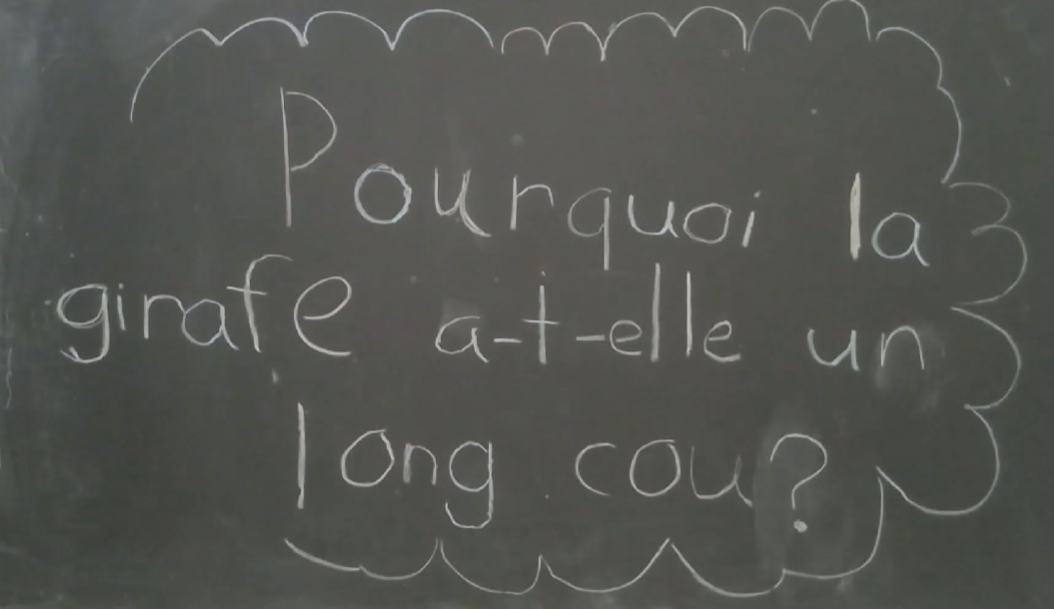 Pourquoi la
girafe a-t-elle un
long cou?